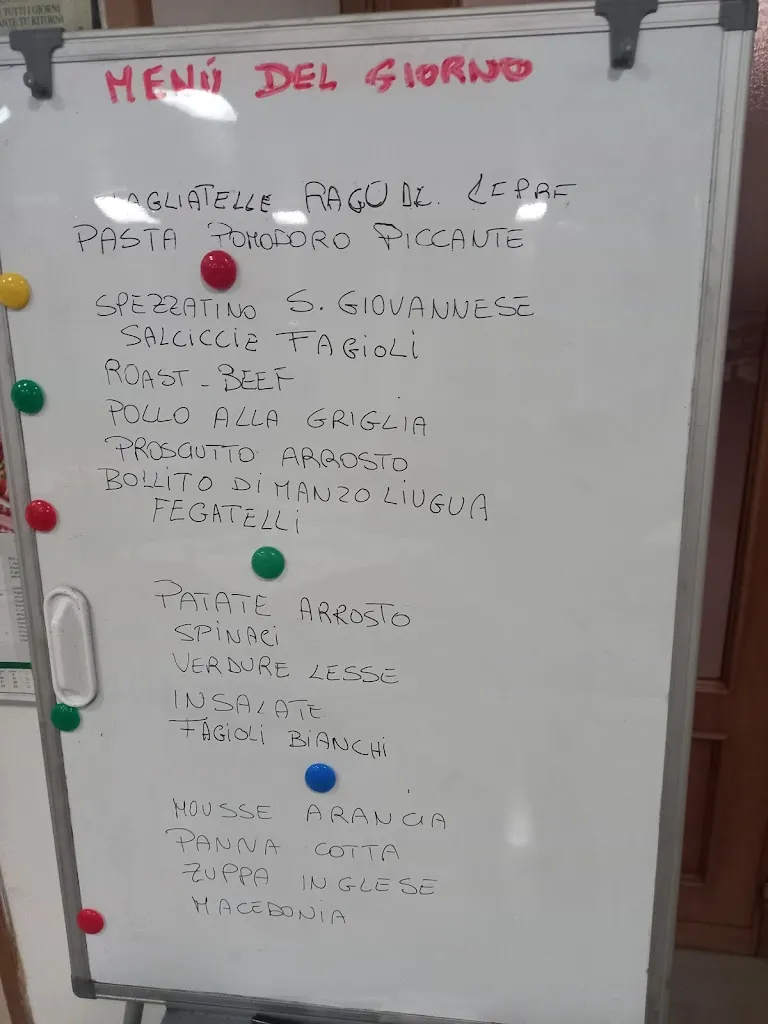 TUTTI I GIORNI
MENÚ DEL GIORNO
TAGLIATELLE RAGÙ DI LEPRE
PASTA POMODORO PICCANTE
SPEZZATINO S. GIOVANNESE
SALCICCIE FAGIOLI
ROAST-BEEF
POLLO ALLA GRIGLIA
PROSCIUTTO ARROSTO
BOLLITO DI MANZO LIUGUA
FEGATELLI
PATATE ARROSTO
SPINACI
VERDURE LESSE
INSALATE
FAGIOLI BIANCHI
MOUSSE ARANCIA
PANNA COTTA
ZUPPA INGLESE
MACEDONIA